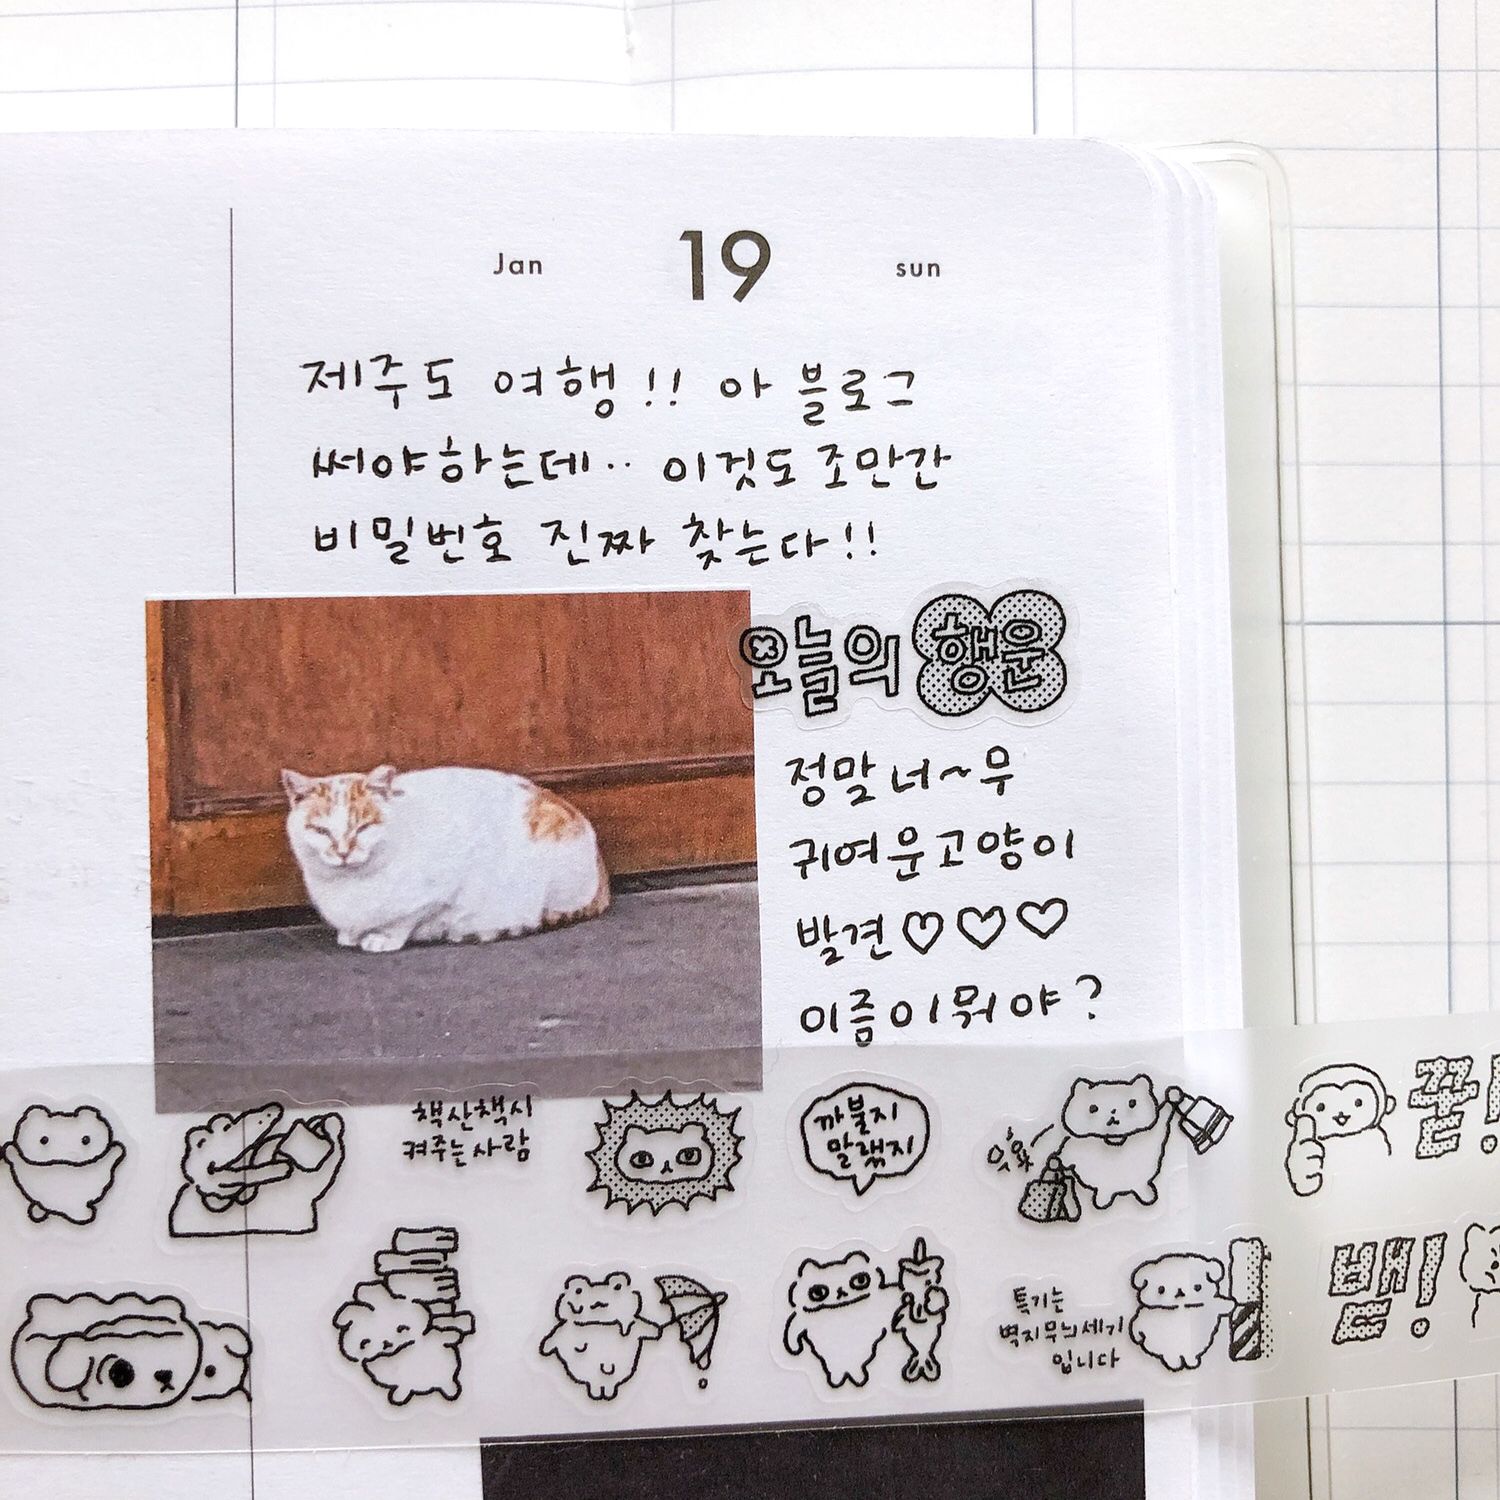 Jan 19 sun
제주도 여행!! 아 블로그
써야하는데.. 이것도 조만간
비밀번호 진짜 찾는다!!
오늘의 행운
정말 너~무
귀여운 고양이
발견♡♡♡
이름이 뭐야?
책산책시
켜주는 사람
까불지
말랬지
읏쌰
끋!
특기는
벽지무늬세기
입니다